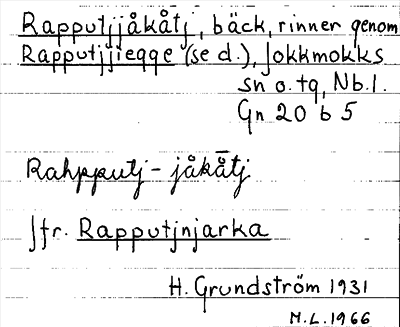 Rapputjjåkåtj, bäck, rinner genom
Rapputjjieqqe (se d.), Jokkmokks
sn o. tg, Nb.l.
Gn 20 b 5
Rahpputj-jåkåtj
Jfr. Rapputjnjarka
H. Grundström 1931
M.L. 1966